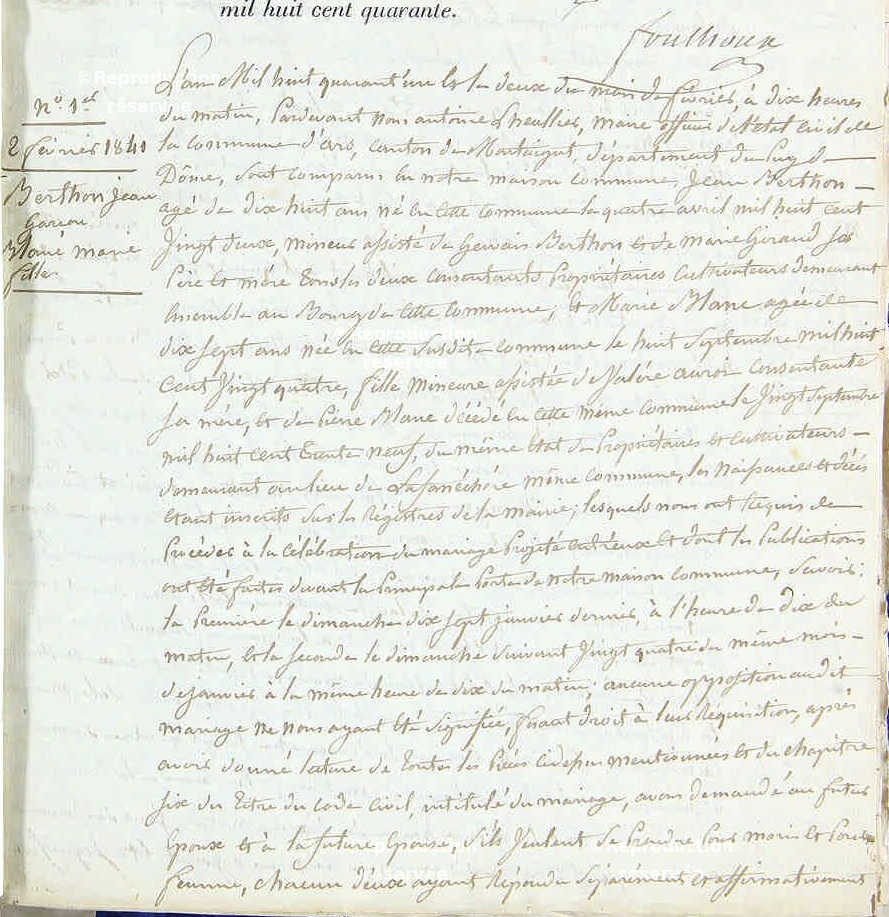 mil huit cent quarante.
foulhoux
© Reproduction réservée
n.o 1.er
2 février 1841
Berthon jean
Garcon
& Mane marie
fille
L'an Mil huit quarant'un et le deux du mois de février, à dix heures
du matin, Pardevant nous antoine Lheullier, maire officier de l'état Civil de
la commune d'ars, canton de Montaigut, département du Puy de
Dôme, sont comparus en notre maison commune, Jean Berthon
agé de dix huit ans né en cette commune le quatre avril mil huit cent
Vingt deux, mineur assisté de Gervais Berthon et de marie Giraud ses
Père et mère tous les deux consentants Propriétaires Cultivateurs demeurant
Ensemble au Bourg de cette Commune; et Marie Mane agée de
dix sept ans née en cette susdite commune le huit Septembre mil huit
Cent Vingt quatre, fille mineure assistée de Valérie consentante
sa mère, et de Pierre Mane décédé en cette même commune le Vingt septembre
mil huit cent trente neuf, du même état de Propriétaires et cultivateurs
demeurant au lieu de même commune, les Naissances et décès
étant inscrits sur les Régistres de la mairie; lesquels nous ont Requis de
Procéder à la Célébration du mariage Projeté entr'eux et dont les Publications
ont été faites devant la Principale Porte de notre maison commune, Savoir:
la Première le dimanche dix sept janvier dernier, à l'heure de dix du
matin, et la seconde le dimanche suivant Vingt quatre du même mois
de janvier à la même heure de dix du matin; aucune opposition au dit
mariage ne nous ayant été signifiée, faisant droit à leur Réquisition, après
avoir donné lecture de toutes les Pièces cidessus mentionnées et du chapitre
six du titre du code Civil, intitulé du mariage, avons demandé au futur
Epoux et à la future Epouse, s'ils Veulent se Prendre Pour mari et Pour
femme, chacun d'eux ayant Répondu Séparément et affirmativement